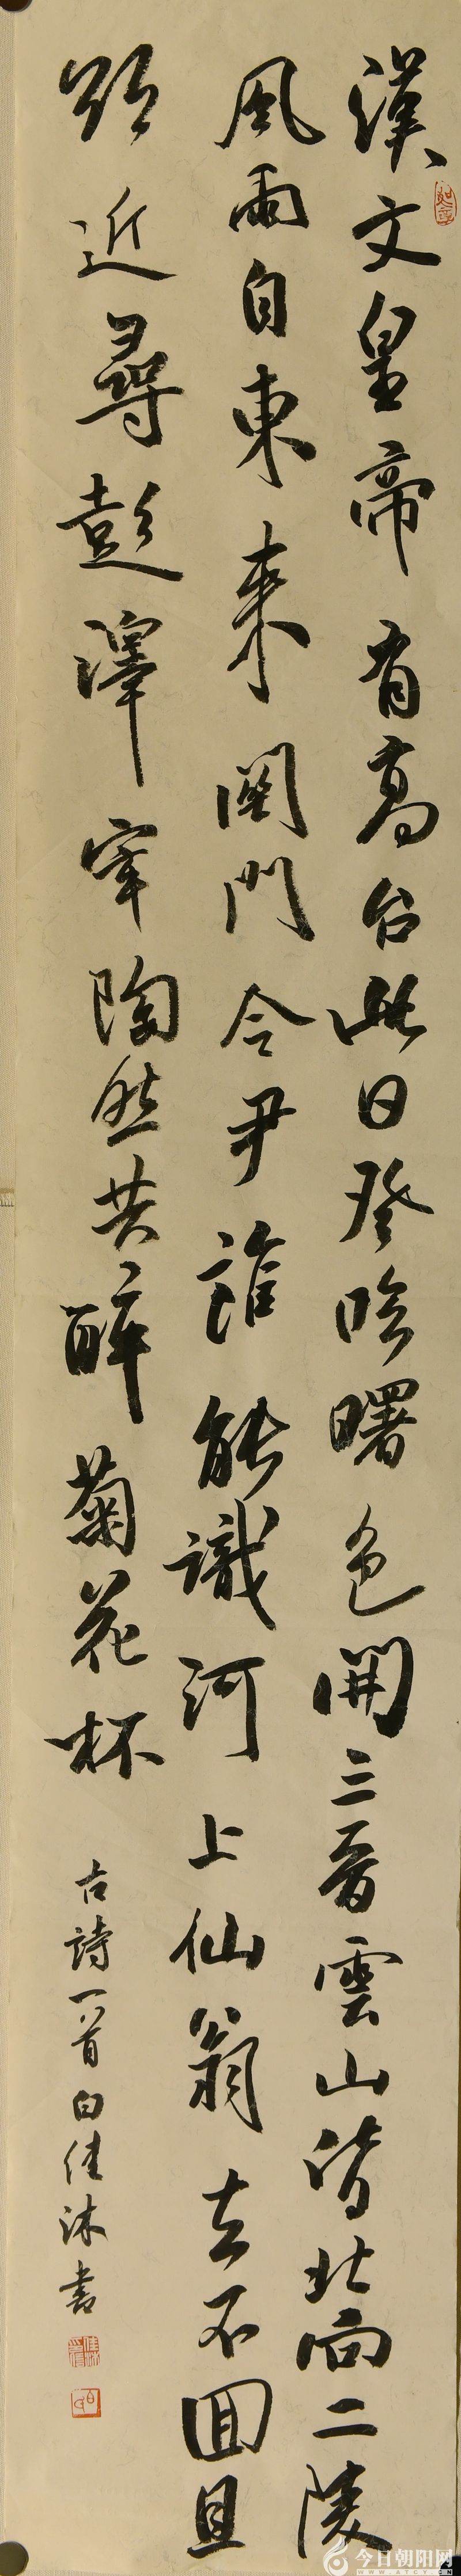 漢文皇帝有高台此日登臨曙色開三晉雲山皆北向二陵
風雨自東來關門令尹誰能識河上仙翁去不囬且
欲近尋彭澤宰陶然共醉菊花杯
古詩一首白佳沐書
今日朝阳网